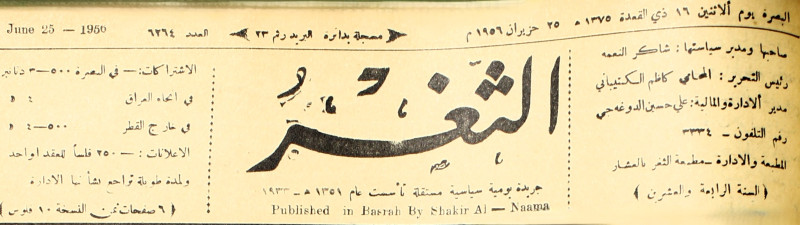 البصرة يوم ألاثنين ١٦ ذي القعدة ١٣٧٥ هـ ٢٥ حزيران ١٩٥٦ م
مسجلة بدائرة البريد رقم ٢٣
العدد ٦٢٦٤
June 25 — 1956
صاحبها ومدير سياستها : شاكر النعمه
رئيس التحرير : المحامي كاظم
مدير ألادارة والمالية : علي حسين الدوغه جي
رقم التلفون — ٣٣٣٤
المطبعة والادارة — مطبعة الثغر بالعشار
( السنة الرابعة والعشرين )
الثغر
جريدة يومية سياسية مستقلة تأسست عام ١٣٥١ هـ — ١٩٣٣
Published in Basrah By Shakir Al — Naama
الاشتراكات : — في البصرة ٥٠٠—٣ دنانير
في انحاء العراق ٤ »
في خارج القطر ٥٠٠—٤ »
الاعلانات : — ٢٥٠ فلساً للعقد الواحد
ولمدة طويلة تراجع بشأنها الادارة
( ٦ صفحات ثمن النسخة ١٠ فلوس )